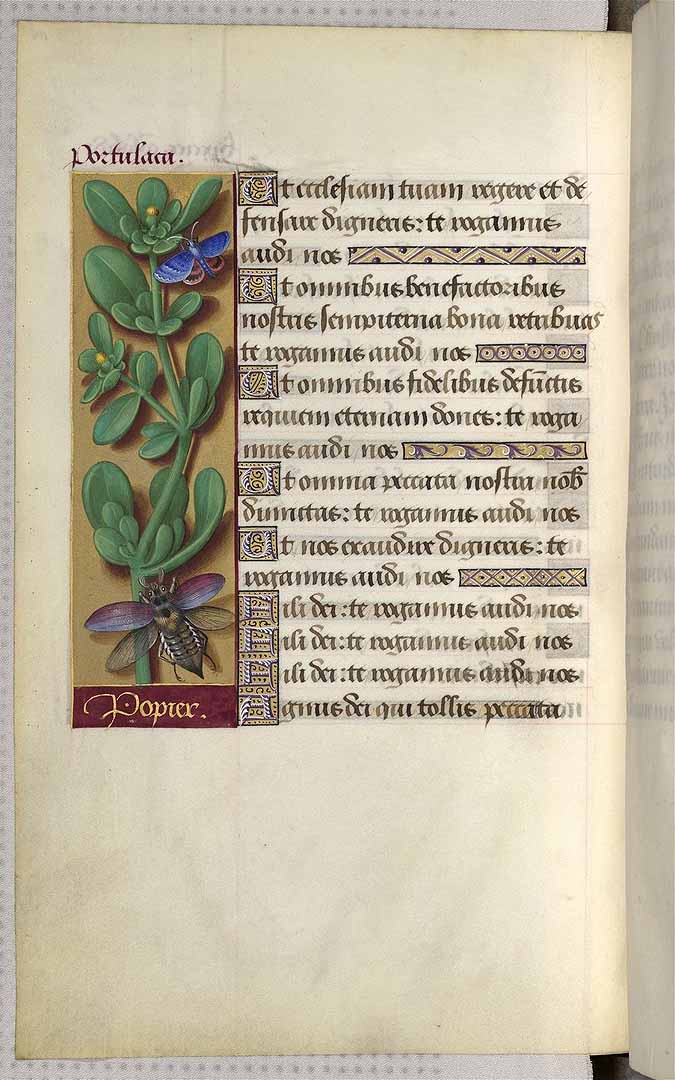 Portulaca.
Ut ecclesiam tuam regere et de
fensare digneris: te rogamus
audi nos
Ut omnibus benefactoribus
nostris sempiterna bona retribuas
te rogamus audi nos
Ut omnibus fidelibus defunctis
requiem eternam dones: te roga
mus audi nos
Ut omnia peccata nostra nob
dimittas: te rogamus audi nos
Ut nos exaudire digneris: te
rogamus audi nos
Fili dei: te rogamus audi nos
Fili dei: te rogamus audi nos
Fili dei: te rogamus audi nos
Agnus dei qui tollis peccata
Popier.